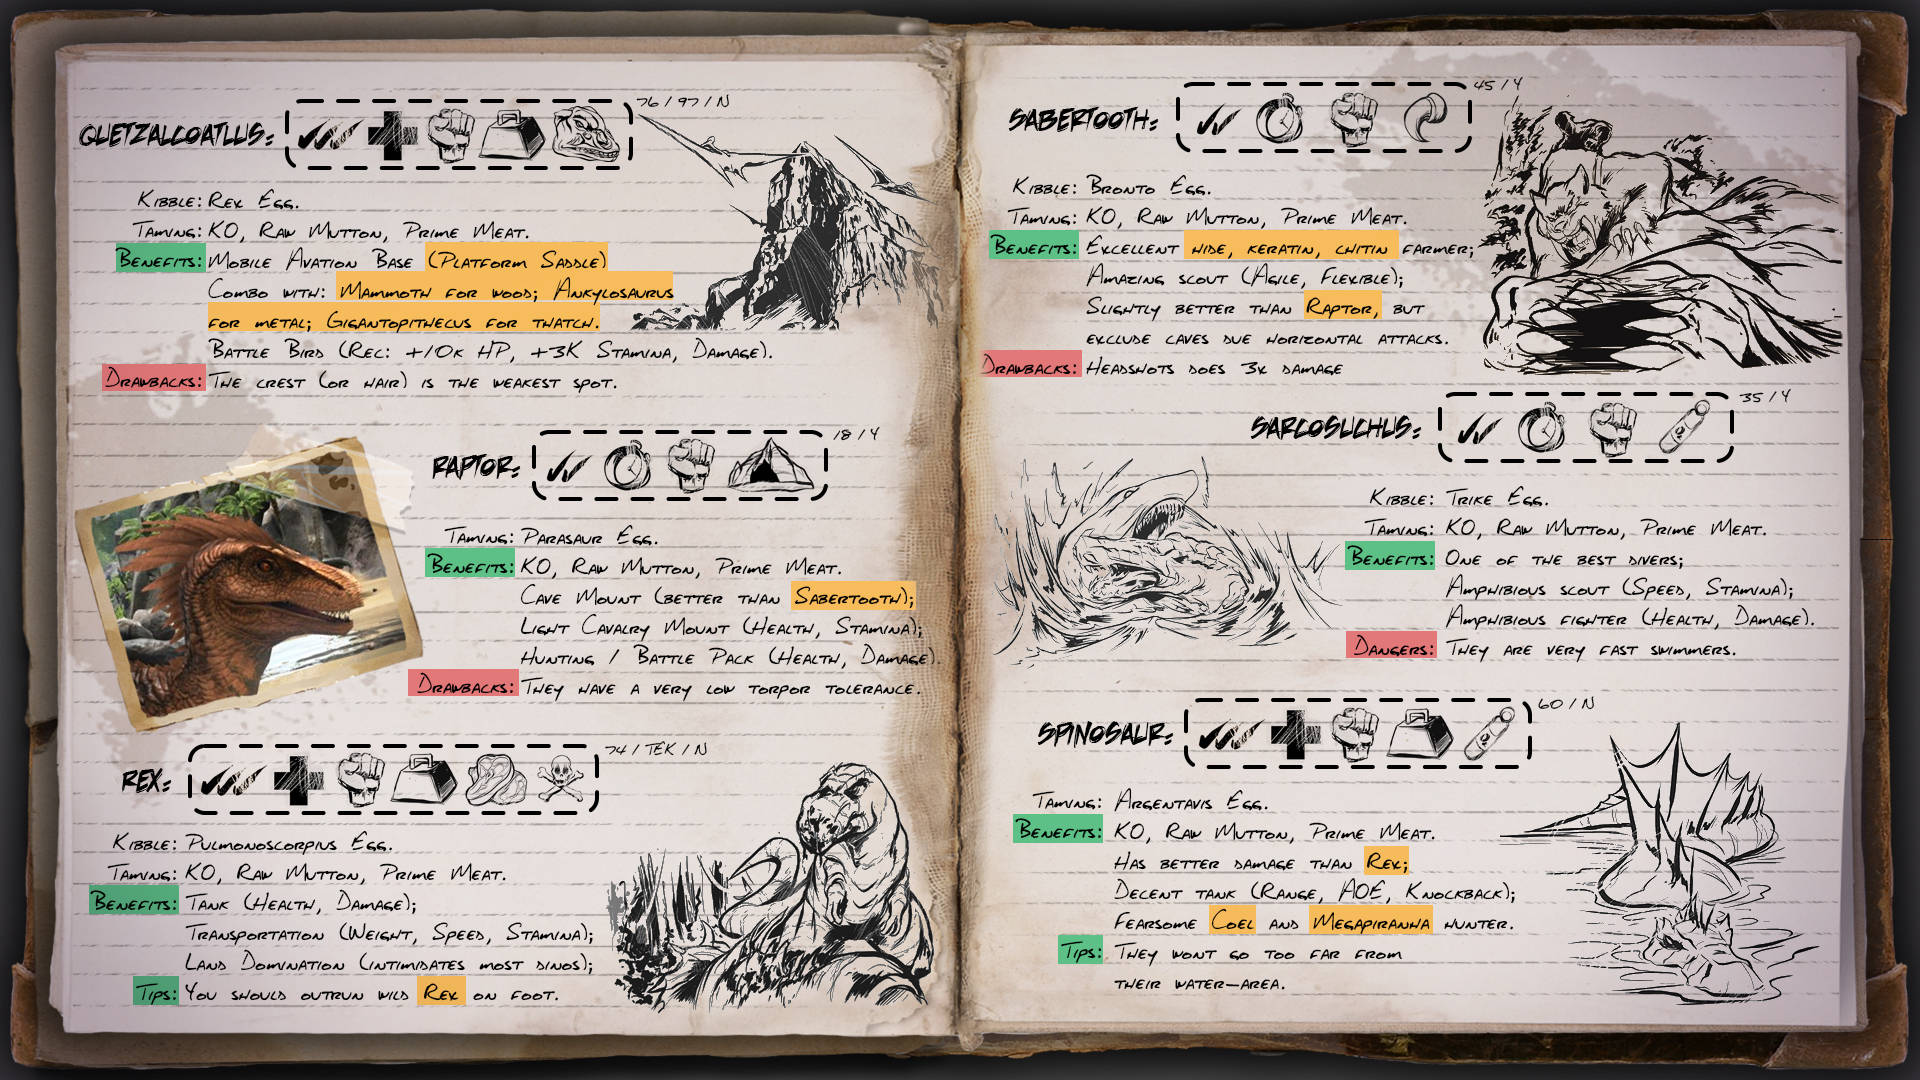 QUETZALCOATLUS:
76 / 97 / N
Kibble: Rex Egg.
Taming: KO, Raw Mutton, Prime Meat.
Benefits: Mobile Avation Base (Platform Saddle)
Combo with: Mammoth for wood; Ankylosaurus
for metal; Gigantopithecus for thatch.
Battle Bird (Rec: +10k HP, +3k Stamina, Damage).
Drawbacks: The crest (or hair) is the weakest spot.
RAPTOR:
18 / Y
Taming: Parasaur Egg.
Benefits: KO, Raw Mutton, Prime Meat.
Cave Mount (better than Sabertooth);
Light Cavalry Mount (Health, Stamina);
Hunting / Battle Pack (Health, Damage).
Drawbacks: They have a very low torpor tolerance.
REX:
74 / TEK / N
Kibble: Pulmonoscorpius Egg.
Taming: KO, Raw Mutton, Prime Meat.
Benefits: Tank (Health, Damage);
Transportation (Weight, Speed, Stamina);
Land Domination (intimidates most dinos);
Tips: You should outrun wild Rex on foot.
SABERTOOTH:
45 / Y
Kibble: Bronto Egg.
Taming: KO, Raw Mutton, Prime Meat.
Benefits: Excellent hide, keratin, chitin farmer;
Amazing scout (Agile, Flexible);
Slightly better than Raptor, but
exclude caves due horizontal attacks.
Drawbacks: Headshots does 3x damage
SARCOSUCHUS:
35 / Y
Kibble: Trike Egg.
Taming: KO, Raw Mutton, Prime Meat.
Benefits: One of the best divers;
Amphibious scout (Speed, Stamina);
Amphibious fighter (Health, Damage).
Dangers: They are very fast swimmers.
SPINOSAUR:
60 / N
Taming: Argentavis Egg.
Benefits: KO, Raw Mutton, Prime Meat.
Has better damage than Rex;
Decent tank (Range, AOE, Knockback);
Fearsome Coel and Megapiranha hunter.
Tips: They wont go too far from
their water-area.